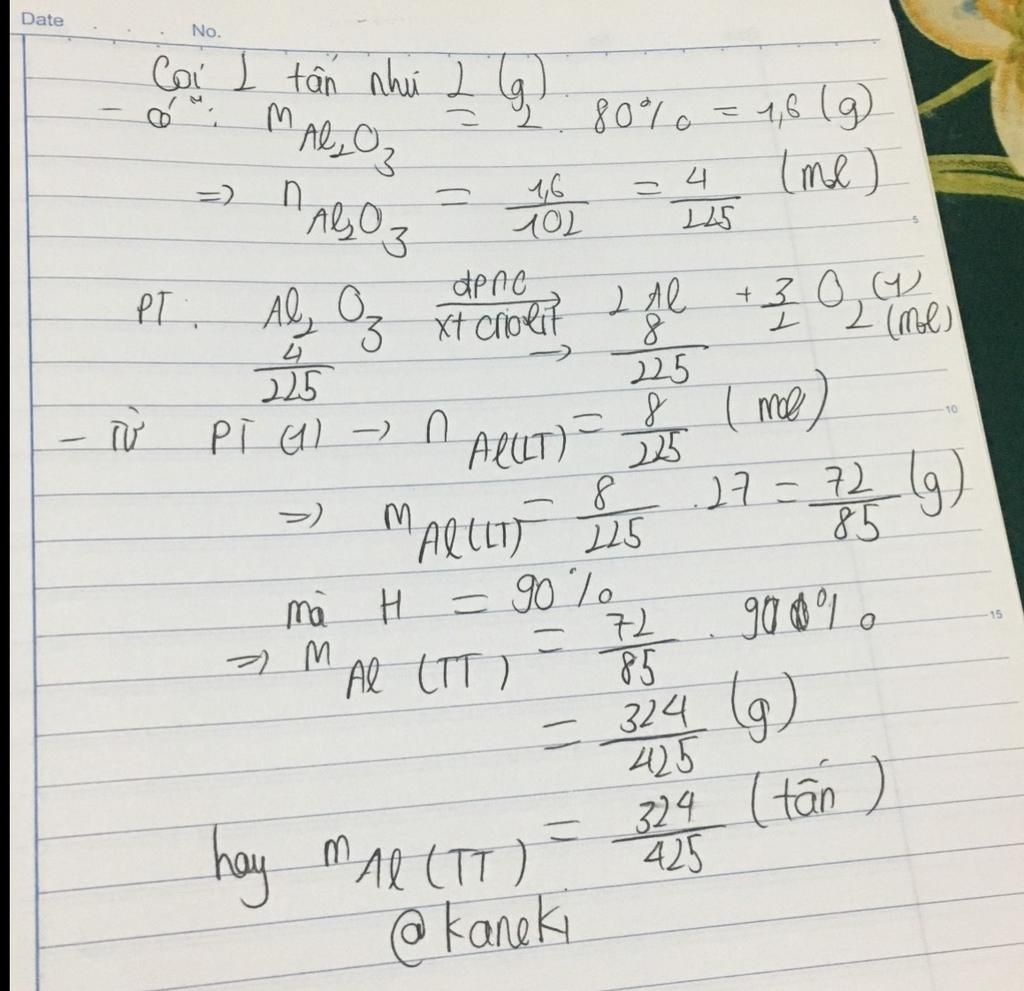 Date . . . . No.
Coi 2 tấn như 2 (g)
- Có : m Al₂O₃ = 2 . 80% = 1,6 (g)
=> n Al₂O₃ = 1,6/102 = 4/225 (mol)
5
PT : Al₂O₃ —đpnc/xt criolit→ 2Al + 3/2 O₂ (1)
4/225 → 8/225 (mol)
- Từ PT (1) → n Al(LT) = 8/225 (mol)
10
=> m Al(LT) = 8/225 . 27 = 72/85 (g)
mà H = 90%
15
=> m Al (TT) = 72/85 . 90%
= 324/425 (g)
hay m Al (TT) = 324/425 (tấn)
@kaneki